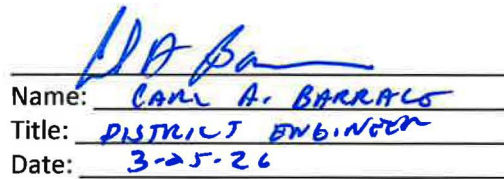 Name: CARL A. BARRACO
Title: DISTRICT ENGINEER
Date: 3-25-26